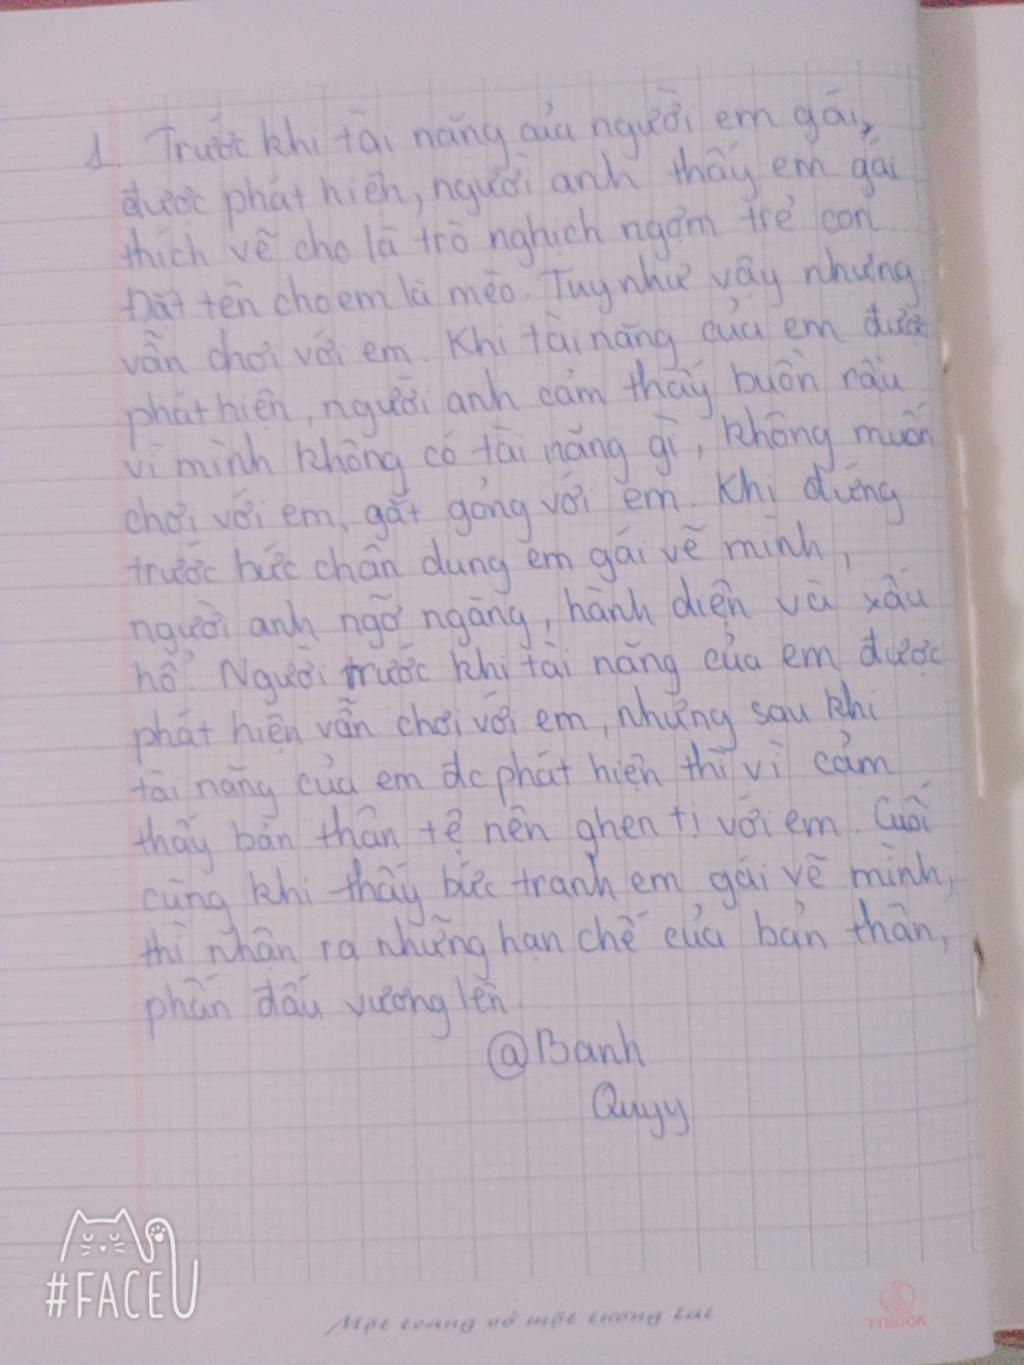 1. Trước khi tài năng của người em gái,
được phát hiện, người anh thấy em gái
thích vẽ cho là trò nghịch ngợm trẻ con
Đặt tên cho em là mèo. Tuy như vậy nhưng
vẫn chơi với em. Khi tài năng của em được
phát hiện, người anh cảm thấy buồn rầu
vì mình không có tài năng gì, không muốn
chơi với em, gắt gỏng với em. Khi đứng
trước bức chân dung em gái vẽ mình,
người anh ngỡ ngàng, hãnh diện và xấu
hổ. Người trước khi tài năng của em được
phát hiện vẫn chơi với em, nhưng sau khi
tài năng của em đc phát hiện thì vì cảm
thấy bản thân tệ nên ghen tị với em. Cuối
cùng khi thấy bức tranh em gái vẽ mình,
thì nhận ra những hạn chế của bản thân,
phấn đấu vương lên.
@Banh
Quyy
#FACEU
Một trang vở một tương lai
TYBOOK